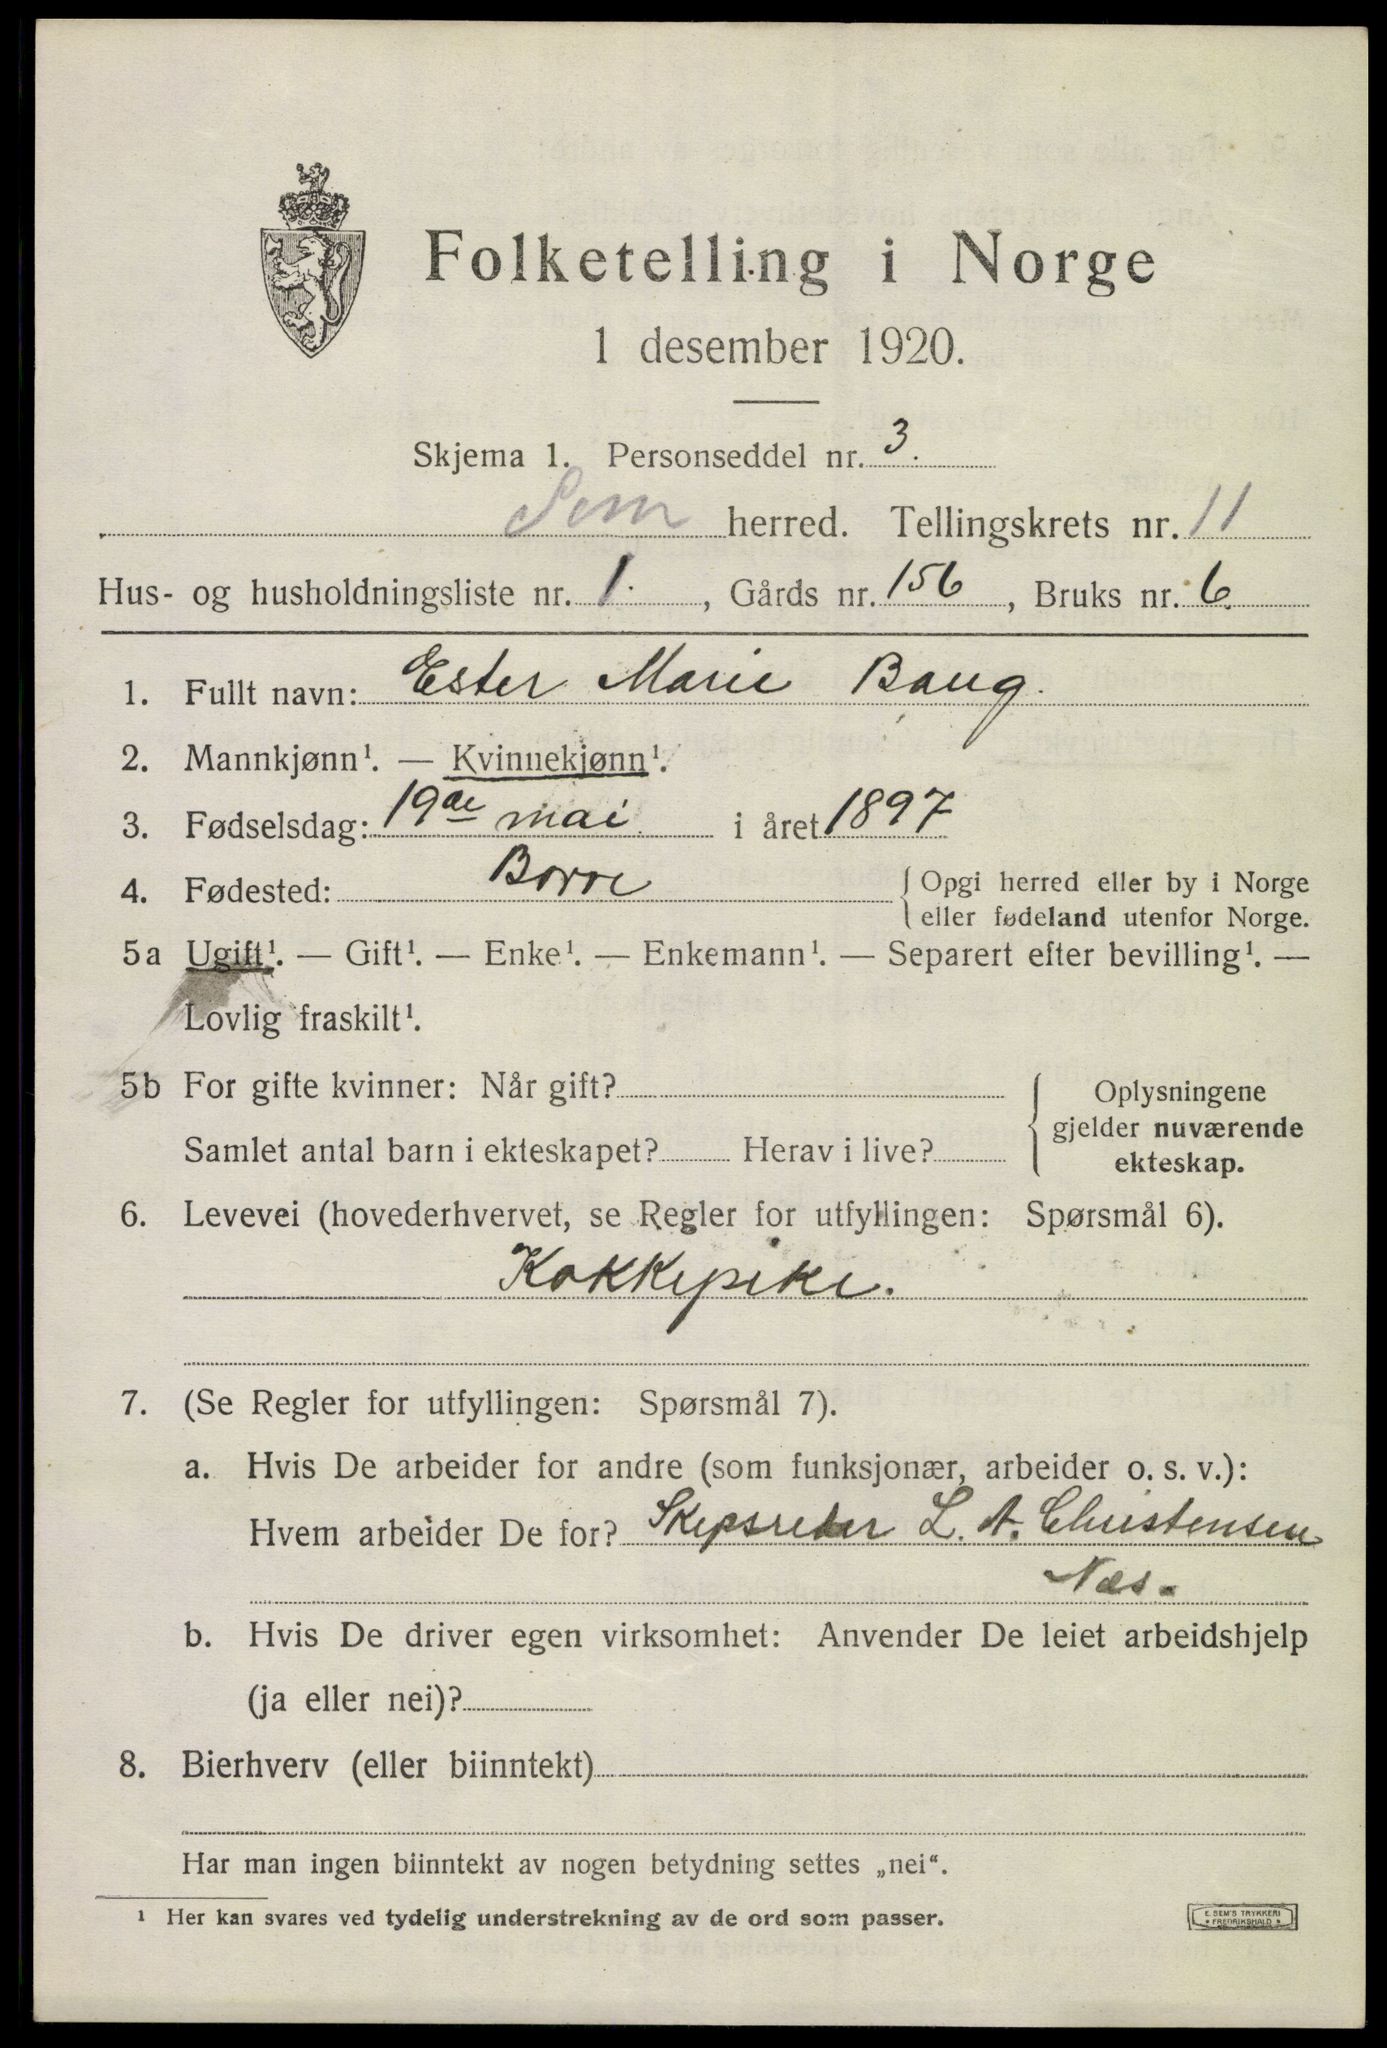 Folketelling i Norge
1 desember 1920.
Skjema 1. Personseddel nr. 3.
Sem herred. Tellingskrets nr. 11
Hus- og husholdningsliste nr. 1. , Gårds nr. 156 , Bruks nr. 6.
1. Fullt navn: Ester Marie Baug.
2. Mannkjønn¹. — Kvinnekjønn¹.
3. Fødselsdag: 19de mai i året 1897
4. Fødested: Borre { Opgi herred eller by i Norge
eller fødeland utenfor Norge.
5a Ugift¹. — Gift¹. — Enke¹. — Enkemann¹. — Separert efter bevilling¹. —
Lovlig fraskilt¹.
5b For gifte kvinner: Når gift?
Samlet antal barn i ekteskapet? Herav i live?
{ Oplysningene
gjelder nuværende
ekteskap.
6. Levevei (hovederhvervet, se Regler for utfyllingen: Spørsmål 6).
Kokkepike.
7. (Se Regler for utfyllingen: Spørsmål 7).
a. Hvis De arbeider for andre (som funksjonær, arbeider o. s. v.):
Hvem arbeider De for? Skipsreder L. A. Christensen
Næs.
b. Hvis De driver egen virksomhet: Anvender De leiet arbeidshjelp
(ja eller nei)?
8. Bierhverv (eller biinntekt)
Har man ingen biinntekt av nogen betydning settes „nei“.
¹ Her kan svares ved tydelig understrekning av de ord som passer.
E. SEM'S TRYKKERI
FREDRIKSHALD